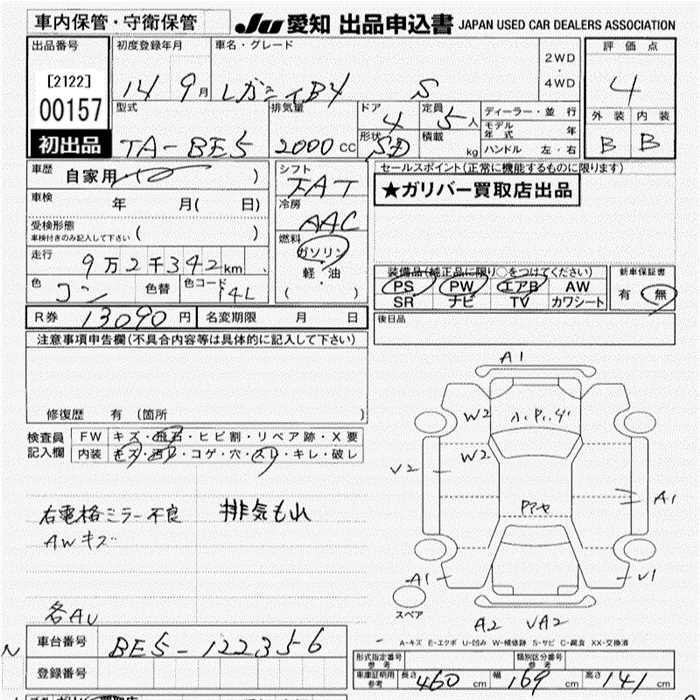 車内保管・守衛保管
JU 愛知 出品申込書 JAPAN USED CAR DEALERS ASSOCIATION
出品番号 初度登録年月 車名・グレード 2WD・4WD 評価点
[2122] 14 9月 レガシィB4 S 4
00157
型式 排気量 ドア 4 定員 5人 ディーラー・並行 外装 内装
初出品 TA-BE5 2000cc 形状 SD 積載 kg モデル年式 年 B B
ハンドル 左・右
車歴 自家用 ( ) シフト FAT セールスポイント(正常に機能するものに限ります)
車検 年 月( 日) 冷房 AAC ★ガリバー買取店出品
受検形態 ( )
車検付きのみ記入して下さい
燃料 ガソリン
軽・油
( )
走行 9万2千342km 装備品(純正品に限り○をつけてください) 新車保証書
色 コン 色替 色コード 14L PS PW エアB AW 有 無
SR ナビ TV カワシート
R券 13090円 名変期限 月 日 後日品
注意事項申告欄(不具合内容等は具体的に記入して下さい)
修復歴 有 (箇所 )
検査員記入欄 FW キズ・飛石・ヒビ割・リペア跡・X要
内装 キズ・汚レ・コゲ・穴・スレ・キレ・破レ
右電格ミラー不良 排気もれ
AWキズ
各AU
A1
W2
W2
V2
A1
A1
V1
スペア
A2 VA2
A-キズ E-エクボ U-凹み W-補修跡 S-サビ C-腐食 XX-交換済
N 車台番号 BE5-122356
登録番号
形式指定番号 参考 類別区分番号 参考
車庫証明用 参考 長さ 460cm 幅 169cm 高さ 141cm